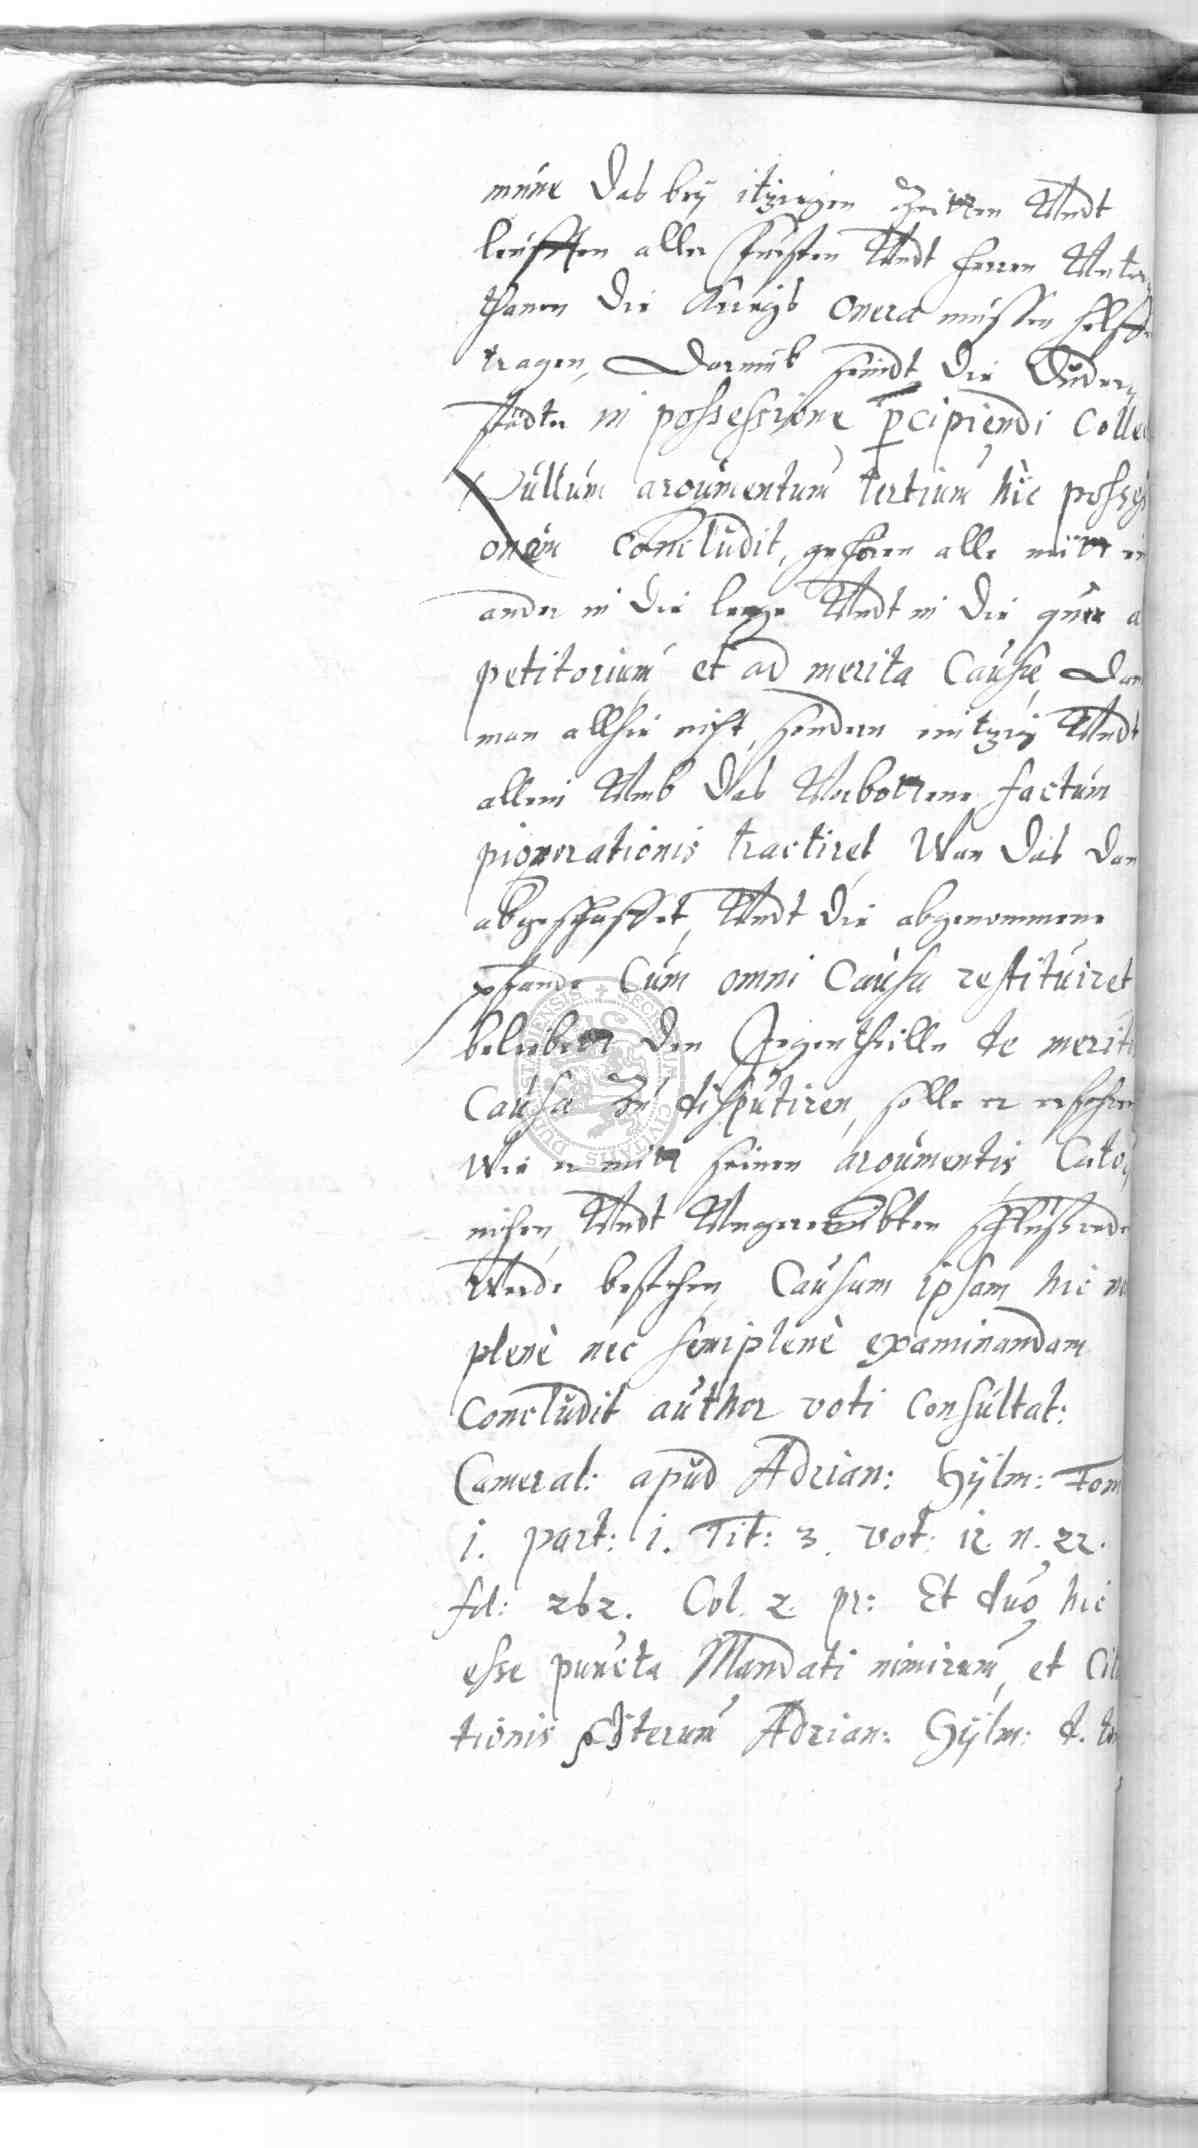 mune das bey itzigen Zeitten Undt
leufften aller Fursten Undt Herren Unter
thanen die Kriegs onera mussen helffe
tragen, Darumb seindt die Duder
stadter in possessione pcipiendi Colle
Nullum argumentum tertium hic posses
onem concludit, gehören alle mitt ein
ander in die lenge Undt in die quer a
petitorium et ad merita Causæ, Dan
man allhie nicht, sondern eintzig Undt
allein Umb das Verbottene factum
pignorationis tractiret, Wan das dan
abgeschaffet, Undt die abgenommene
pfande Cum omni Causa restituiret
beliebett den Gegentheille de merit
Causa Zu disputiren, solle er erfahren
Wie er mitt seinen argumentis, Cato
nischen, Undt Ungereimbten schlussrede
Werde bestehen, Causam ipsam hic n
plenè nec semiplenè examinandam
Concludit author voti Consultat:
Cameral: apud Adrian: Gijlm: Tom
1. part: 1. Tit: 3. vot: 12. n. 22.
fol: 262. Col. 2. pr: Et duo hic
esse puncta Mandati nimirum, et Cit
tionis iterum Adrian: Gijlm: d. to